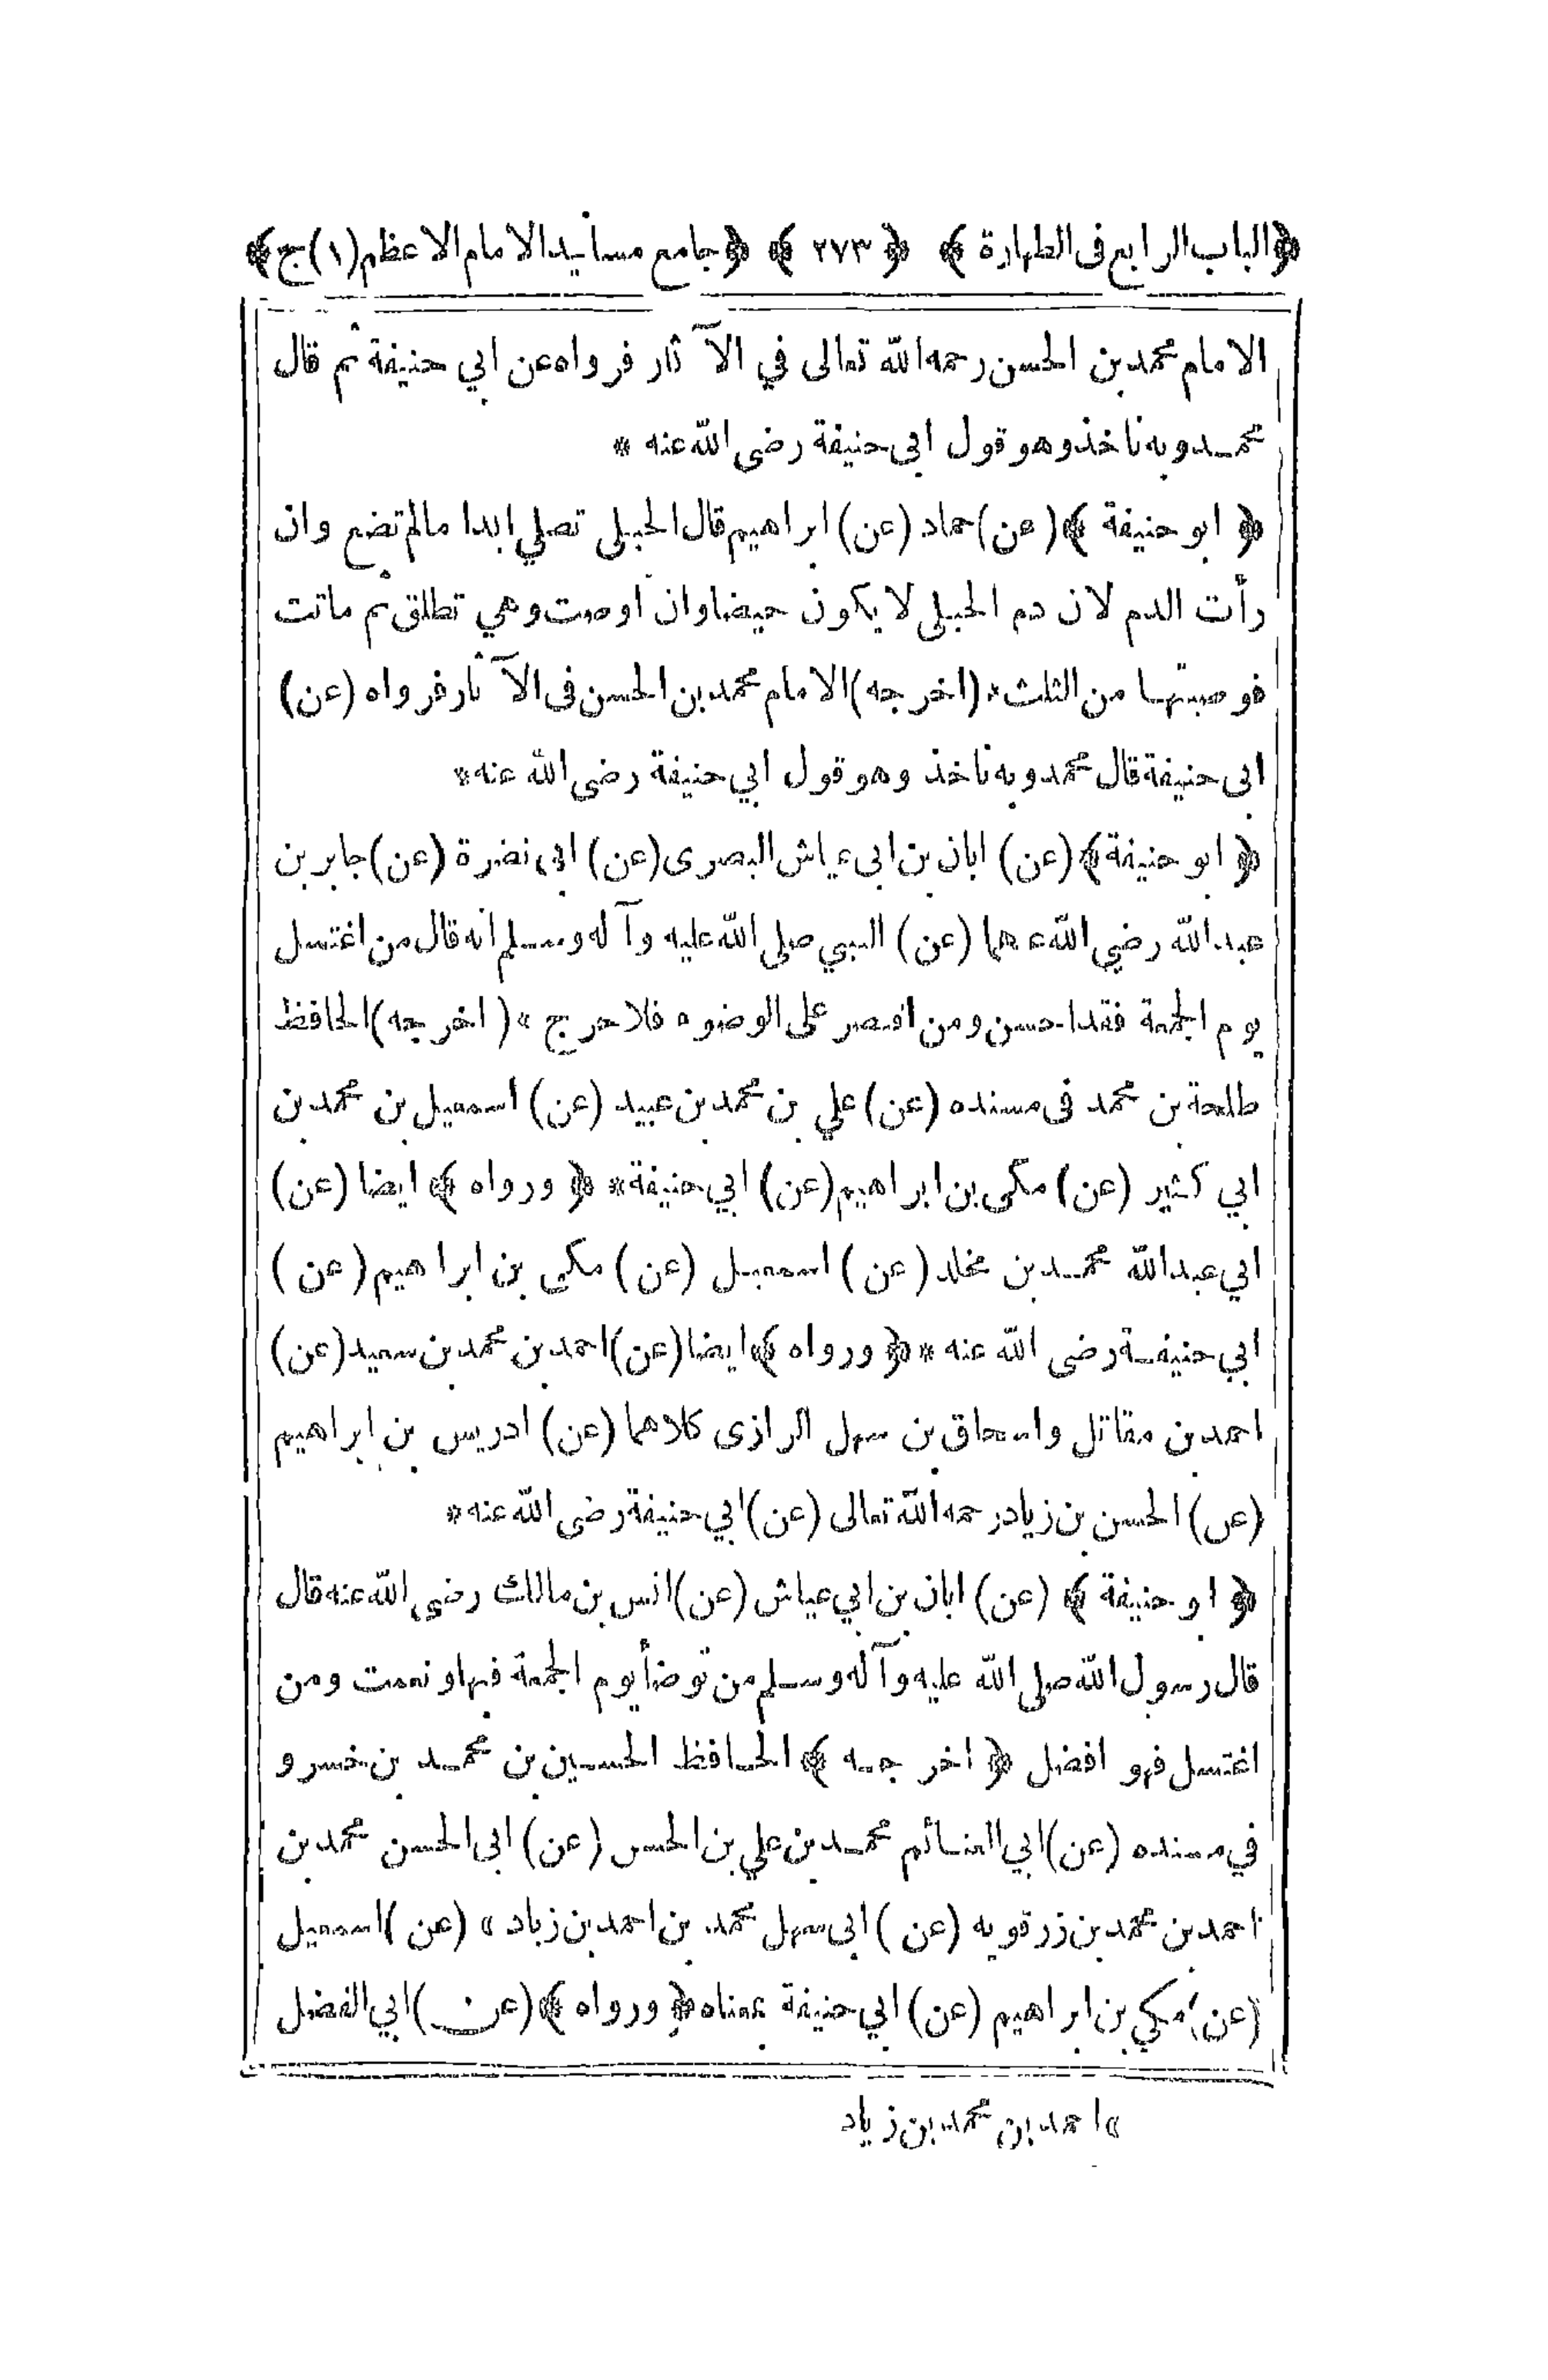 ﴿الباب الرابع فى الطهارة﴾ ﴿ ٢٧٣ ﴾ ﴿جامع مسانيد الامام الاعظم (١) ج﴾
الامام محمد بن الحسن رحمه الله تعالى في الآثار فرواه عن ابي حنيفة ثم قال
محمد وبه ناخذ وهو قول ابى حنيفة رضى الله عنه *
﴿ ابو حنيفة ﴾ (عن) حماد (عن) ابراهيم قال الحبلى تصلي ابدا مالم تضع وان
رأت الدم لان دم الحبلى لا يكون حيضا وان اوصت وهي تطلق ثم ماتت
فوصيتها من الثلث * (اخرجه) الامام محمد بن الحسن فى الآثار فرواه (عن)
ابى حنيفة قال محمد وبه ناخذ وهو قول ابي حنيفة رضى الله عنه *
﴿ ابو حنيفة﴾ (عن) ابان بن ابى عياش البصرى (عن) ابى نضرة (عن) جابر بن
عبد الله رضي الله عنهما (عن) النبي صلى الله عليه وآله وسلم انه قال من اغتسل
يوم الجمعة فقد احسن ومن اقتصر على الوضوء فلا حرج * (اخرجه) الحافظ
طلحة بن محمد فى مسنده (عن) علي بن محمد بن عبيد (عن) اسمعيل بن محمد بن
ابي كثير (عن) مكى بن ابراهيم (عن) ابي حنيفة * ﴿ ورواه ﴾ ايضا (عن)
ابي عبد الله محمد بن مخلد (عن) اسمعيل (عن) مكى بن ابراهيم (عن)
ابي حنيفة رضى الله عنه * ﴿ ورواه ﴾ ايضا (عن) احمد بن محمد بن سعيد (عن)
احمد بن مقاتل واسحاق بن سهل الرازى كلاهما (عن) ادريس بن ابراهيم
(عن) الحسن بن زياد رحمه الله تعالى (عن) ابي حنيفة رضى الله عنه *
﴿ ابو حنيفة ﴾ (عن) ابان بن ابي عياش (عن) انس بن مالك رضي الله عنه قال
قال رسول الله صلى الله عليه وآله وسلم من توضأ يوم الجمعة فبها ونعمت ومن
اغتسل فهو افضل ﴿ اخرجه ﴾ الحافظ الحسين بن محمد بن خسرو
في مسنده (عن) ابي الغنائم محمد بن علي بن الحسن (عن) ابى الحسن محمد بن
احمد بن محمد بن زرقويه (عن) ابى سهل محمد بن احمد بن زياد « (عن) اسمعيل
(عن) مكي بن ابراهيم (عن) ابي حنيفة بمعناه ﴿ ورواه ﴾ (عن) ابي الفضل
« احمد بن محمد بن زياد